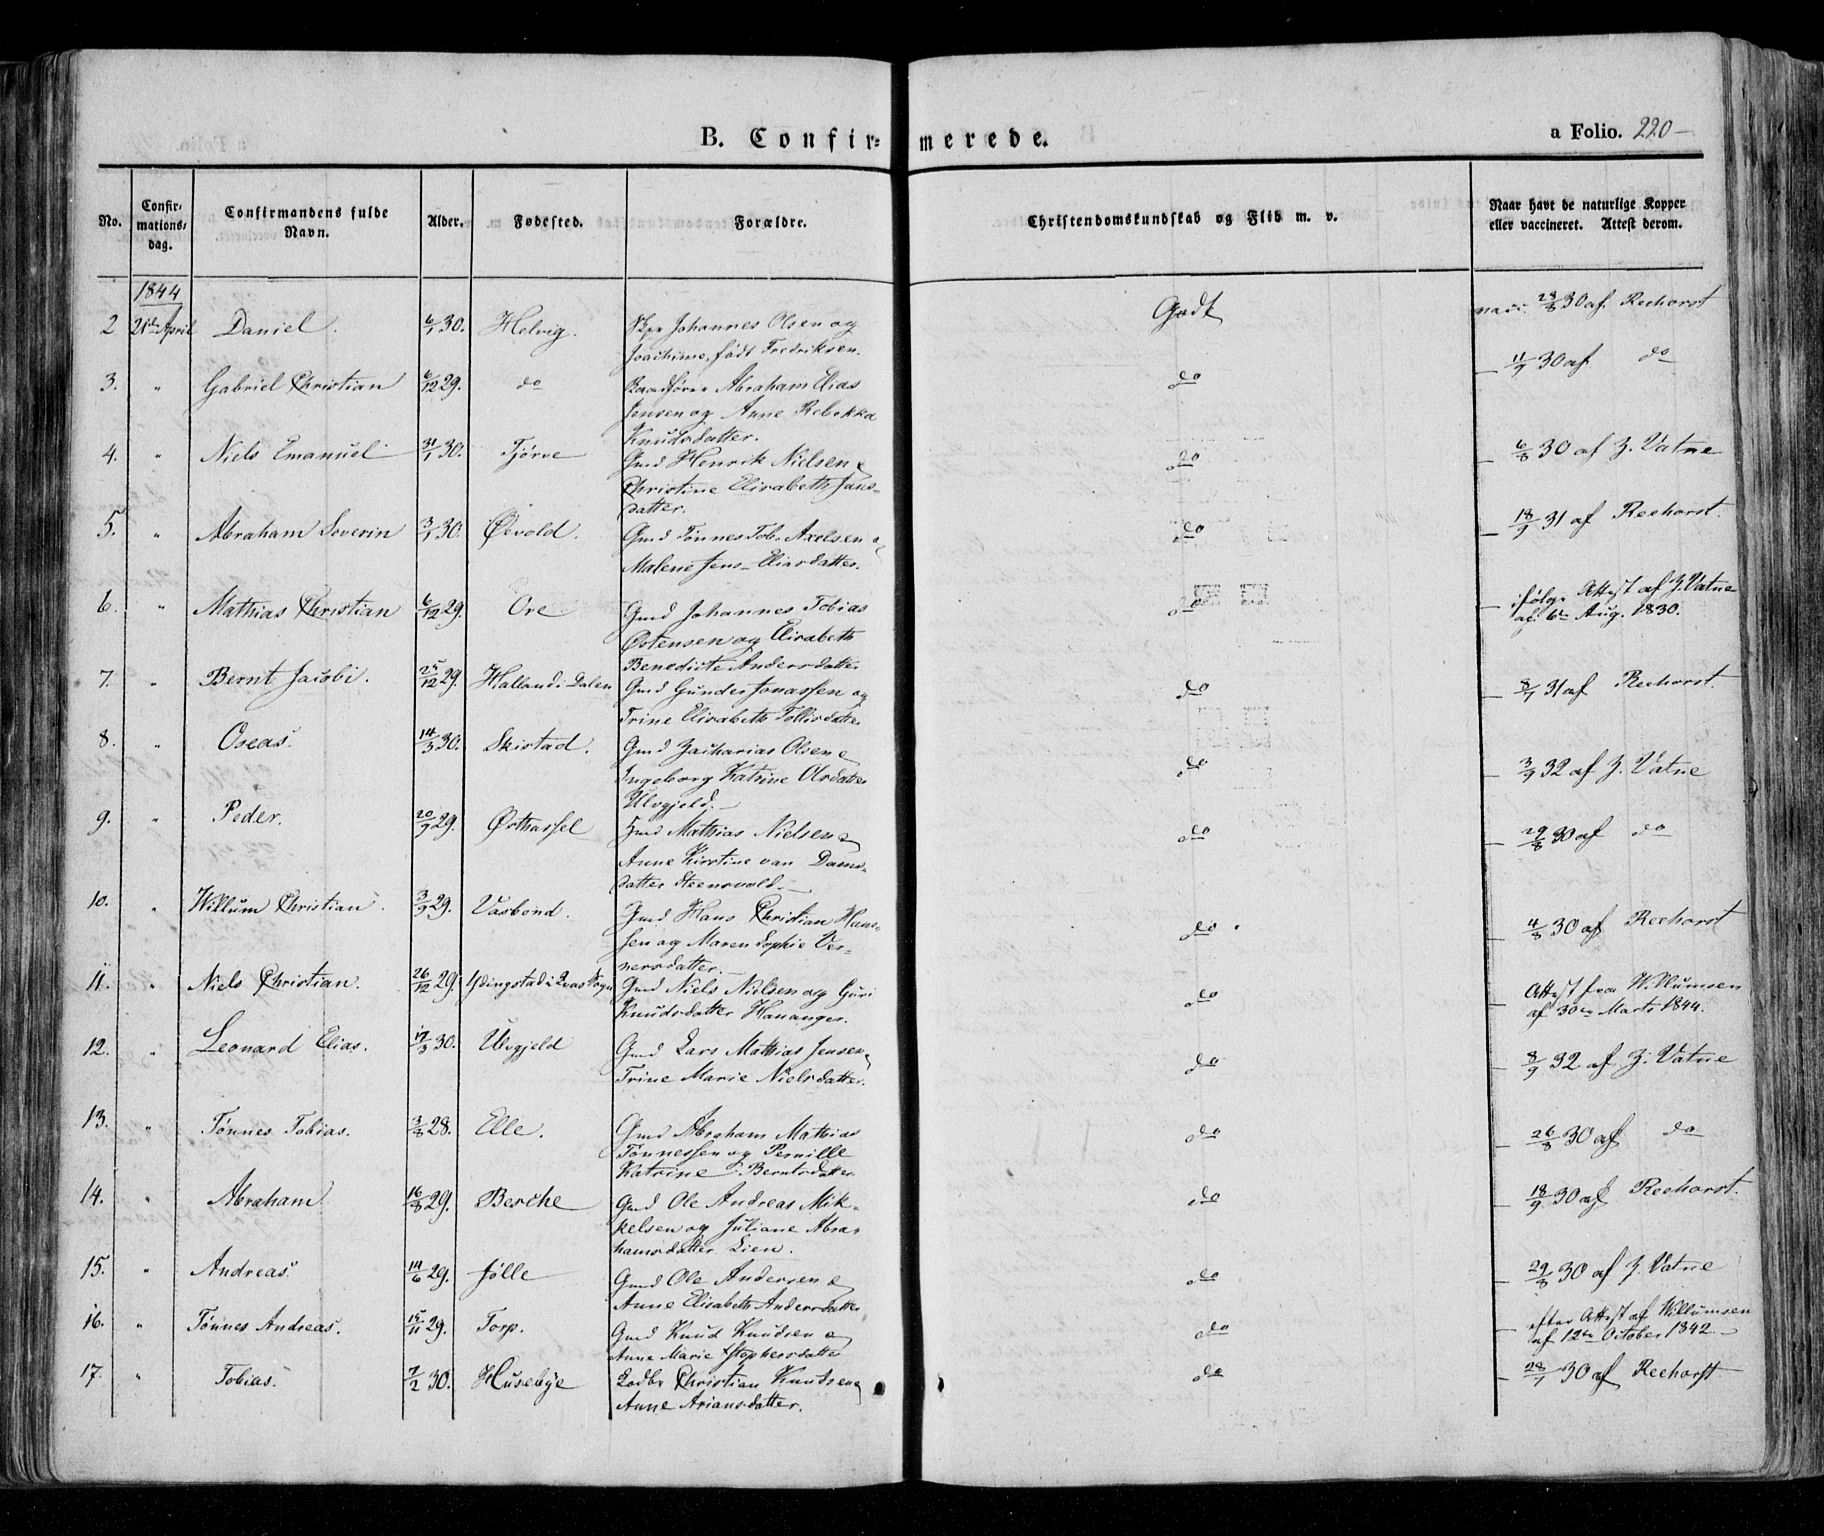 B. Confir= merede.
a Folio. 220-
No.
Confir-
mations-
dag.
Confirmandens fulde
Navn.
Alder.
Fødested.
Forældre.
Christendomskundskab og Flid m. v.
Naar havt de naturlige Kopper
eller vaccineret. Attest derom.
1844
2 21de April Daniel. 6/1 30. Helvig. Johannes Olsen og Godt 28/8 30 af Reehorst
Joachime, født Fredriksen.
3. " Gabriel Christian 6/12 29. do Abraham Elias do 11/7 30 af do
Jensen og Anne Rebekka
Knudsdatter.
4. " Niels Emanuel 31/1 30. Tjørve Gmd Henrik Nielsen & do 6/8 30 af Z. Vatne
Christine Elisabeth Jans-
datter.
5. " Abraham Severin 3/1 30. Øevold. Gmd Tønnes Tob. Axelsen & do 18/9 31 af Reehorst.
Malene Jens-Eliasdatter.
6. " Mathias Christian 6/12 29. Ore Gmd Johannes Tobias do ifølge Attest af Z. Vatne
af 6te Aug. 1830.
Østensen og Elisabeth
Benedicte Andersdatter
7. " Bernt Jacobi. 25/12 29. Halland i Dalen Gmd Gunder Jonassen og do 8/7 31 af Reehorst.
Trine Elisabeth Tollisdatter
8. " Oseas. 14/3 30. Skistad. Gmd Zacharias Olsen & do 3/9 32 af Z. Vatne
Ingeborg Katrine Olsdatter
Ulvgjeld.-
9. " Peder. 20/9 29. Østhassel Gmd Mathias Nielsen & do 29/8 30 af do
Anne Kirstine van Dams-
datter Steensvold.-
10. " Willum Christian. 3/9 29. Vasbønd. Gmd Hans Christian Han- do 4/8 30 af Reehorst
sen og Maren Sophie Ver-
nersdatter.-
11. " Niels Christian. 26/12 29. i Qvas Sogn Gmd Niels Nielsen og Guri do Attest fra Willumsen
af 30te Marts 1844.
Knudsdatter Hananger.
12. " Leonard Elias. 17/3 30. Ulvgjeld Gmd Lars Mathias Jensen & do 8/9 32 af Z. Vatne
Trine Marie Nielsdatter.
13. " Tønnes Tobias. 3/8 28. Elle. Gmd Abraham Mathias do 26/8 30 af do
Tønnessen og Pernille
Katrine Berntsdatter
14. " Abraham 16/8 29. Berche Gmd Ole Andreas Mik- do 18/9 30 af Reehorst.
kelsen og Juliane Abra-
hamsdatter Lien.
15. " Andreas. 14/6 29. Jølle Gmd Ole Andersen & do 29/8 30 af Z. Vatne
Anne Elisabeth Andersdatter
16. " Tønnes Andreas. 15/11 29. Torp. Gmd Knud Knudsen & do efter Attest af Willumsen
af 12te October 1842.-
Anne Marie Stophersdatter
17. " Tobias. 7/2 30. Husebye Lods Christian Knudsen & do 28/7 30 af Reehorst
Anne Ariansdatter.